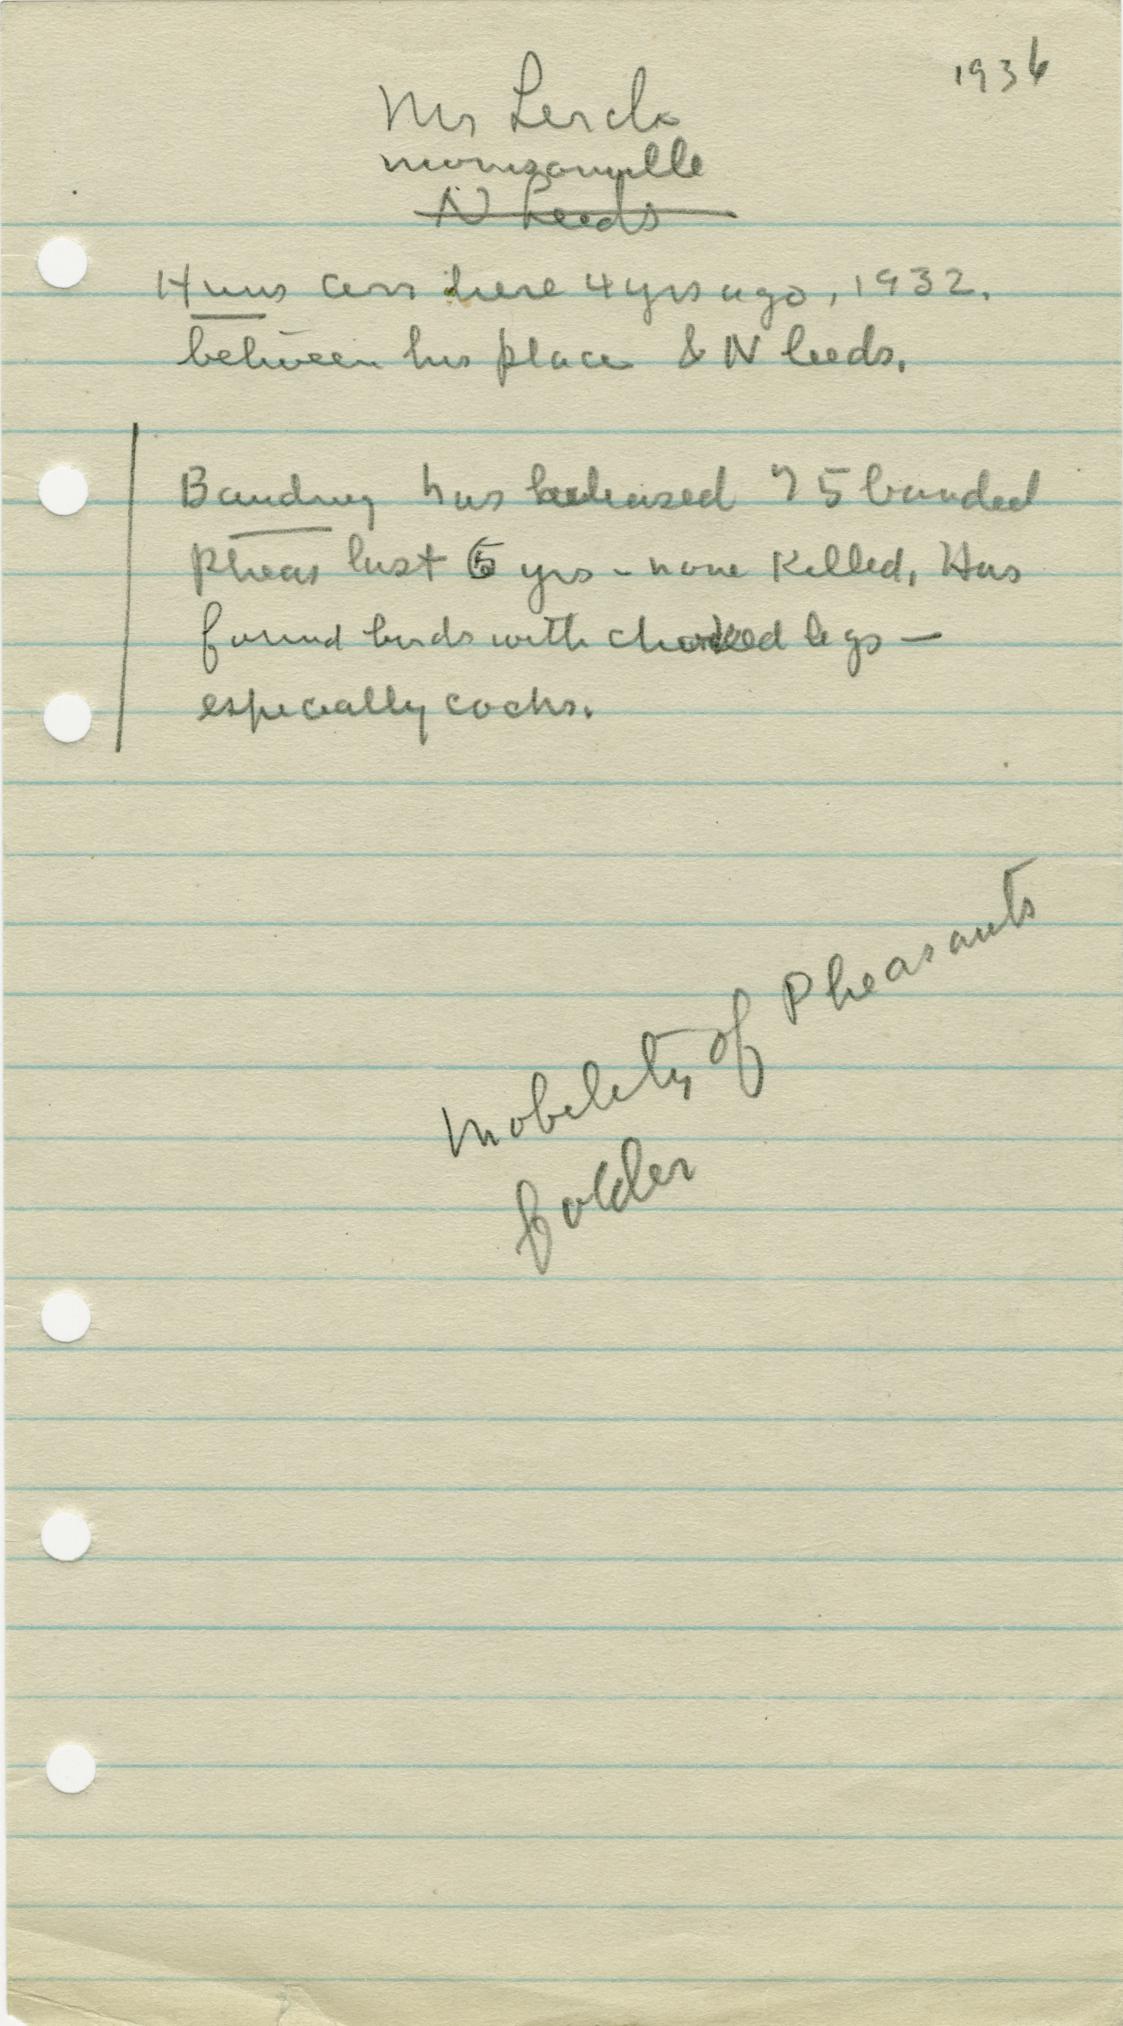 1936
Mr Lerch
Morrisonville
N Leeds
Huns arr here 4 yrs ago, 1932.
between his place & N Leeds.
Banding has released 75 banded
pheas last 5 yrs - none killed. Has
found birds with choked legs -
especially cocks.
Mobility of Pheasants
folder